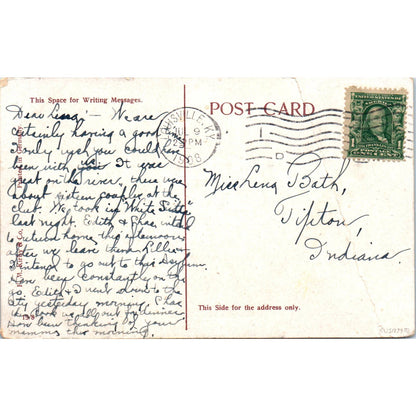 This Space for Writing Messages.
POST CARD
Dear Lena:- We are
certainly having a good
I only wish you could have
been with us. It was
great on the river, there were
about sixteen couples at the
club. We took in White
last night. Edith &
to return home this afternoon
after we leave them
I intend to go out to the
been constantly on the
go. Edith & I went down to the
city yesterday morning.
us all out for dinner.
Have been thinking of your
mamma this morning.
KY.
1908
Miss Lena Bath,
Tipton,
Indiana
This Side for the address only.